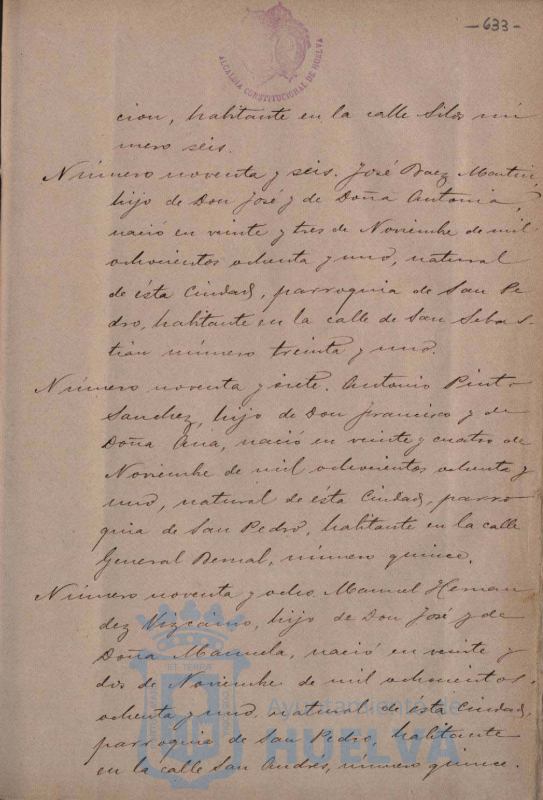 -633-
ALCALDIA CONSTITUCIONAL DE HUELVA
cion, habitante en la calle Silos nú
mero seis.
Número noventa y seis. José Baez Martin,
hijo de Don José y de Doña Antonia,
nació en veinte y tres de Noviembre de mil
ochocientos ochenta y uno, natural
de ésta Ciudad, parroquia de San Pe
dro, habitante en la calle de San Sebas-
tian número treinta y uno.
Número noventa y siete. Antonio Pinto
Sanchez, hijo de Don Francisco y de
Doña Ana, nació en veinte y cuatro de
Noviembre de mil ochocientos ochenta y
uno, natural de ésta Ciudad, parro
quia de San Pedro, habitante en la calle
General Bernal, número quince.
Número noventa y ocho. Manuel Hernan
dez Vizcaino, hijo de Don José y de
Doña Manuela, nació en veinte y
dos de Noviembre de mil ochocientos
ochenta y uno, natural de ésta Ciudad,
parroquia de San Pedro, habitante
en la calle San Andrés, número quince.
ET TERRÆ
Ayuntamiento de
HUELVA